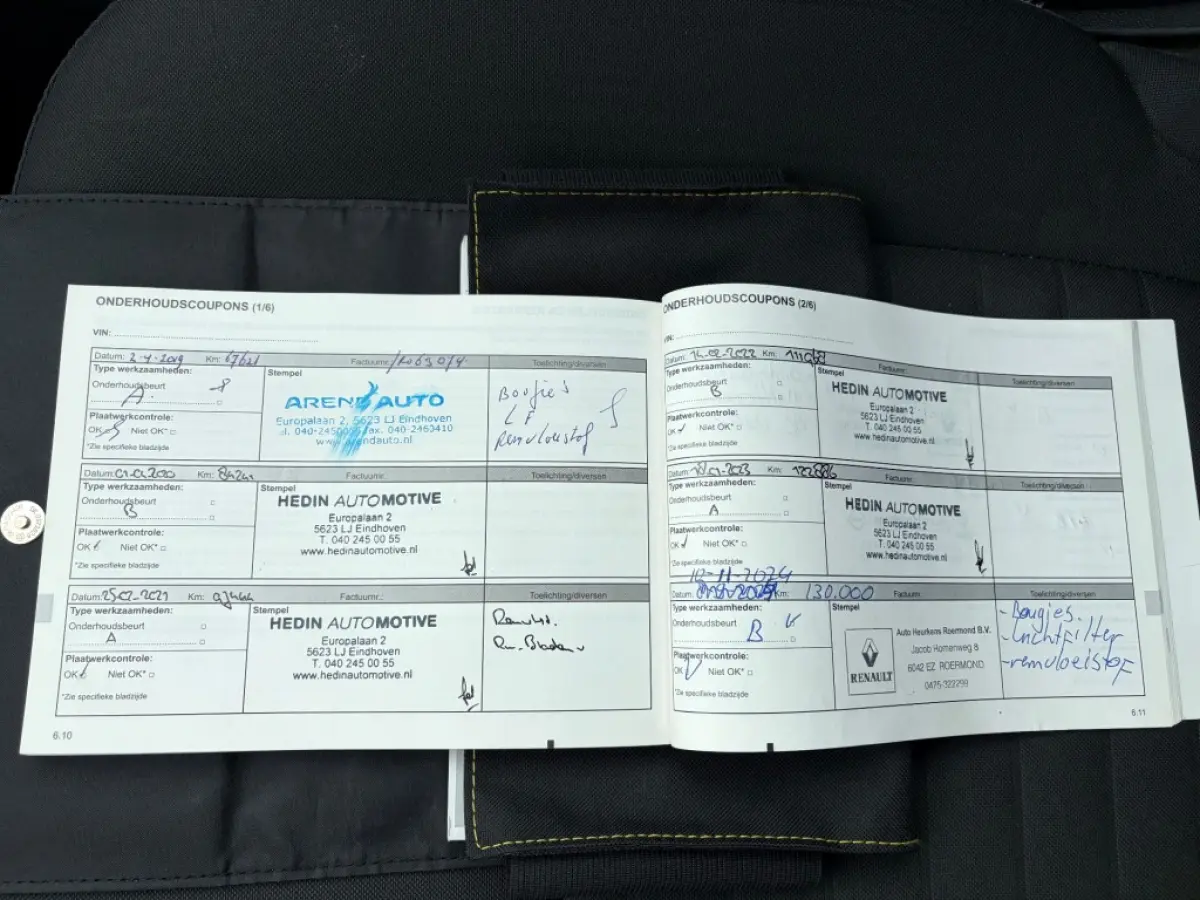 ONDERHOUDSCOUPONS (1/6)
VIN:
Datum: 2-4-2019 Km: Factuurnr.: Toelichting/diversen
Type werkzaamheden:
Onderhoudsbeurt
A.
Plaatwerkcontrole:
OK Niet OK*
*Zie specifieke bladzijde
Stempel
AREND AUTO
Europalaan 2, 5623 LJ Eindhoven
fax. 040-2463410
Bougie's
LF
remvloeistof
Datum: Km: Factuurnr.: Toelichting/diversen
Type werkzaamheden:
Onderhoudsbeurt
B
Plaatwerkcontrole:
OK Niet OK*
*Zie specifieke bladzijde
Stempel
HEDIN AUTOMOTIVE
Europalaan 2
5623 LJ Eindhoven
T. 040 245 00 55
www.hedinautomotive.nl
Datum: 25-02-2021 Km: Factuurnr.: Toelichting/diversen
Type werkzaamheden:
Onderhoudsbeurt
A
Plaatwerkcontrole:
OK Niet OK*
*Zie specifieke bladzijde
Stempel
HEDIN AUTOMOTIVE
Europalaan 2
5623 LJ Eindhoven
T. 040 245 00 55
www.hedinautomotive.nl
6.10
ONDERHOUDSCOUPONS (2/6)
VIN:
Datum: 14-02-2022 Km: Factuurnr.: Toelichting/diversen
Type werkzaamheden:
Onderhoudsbeurt
B
Plaatwerkcontrole:
OK Niet OK*
*Zie specifieke bladzijde
Stempel
HEDIN AUTOMOTIVE
Europalaan 2
5623 LJ Eindhoven
T. 040 245 00 55
www.hedinautomotive.nl
Datum: Km: Factuurnr.: Toelichting/diversen
Type werkzaamheden:
Onderhoudsbeurt
A
Plaatwerkcontrole:
OK Niet OK*
*Zie specifieke bladzijde
Stempel
HEDIN AUTOMOTIVE
Europalaan 2
5623 LJ Eindhoven
T. 040 245 00 55
www.hedinautomotive.nl
12-11-2024
Datum: Km: 130.000 Factuurnr.: Toelichting/diversen
Type werkzaamheden:
Onderhoudsbeurt
B
Plaatwerkcontrole:
OK Niet OK*
*Zie specifieke bladzijde
Stempel
RENAULT
Auto Heurkens Roermond B.V.
Jacob Romenweg 8
6042 EZ ROERMOND
0475-322299
- Bougies.
- Luchtfilter
- remvloeistof
6.11